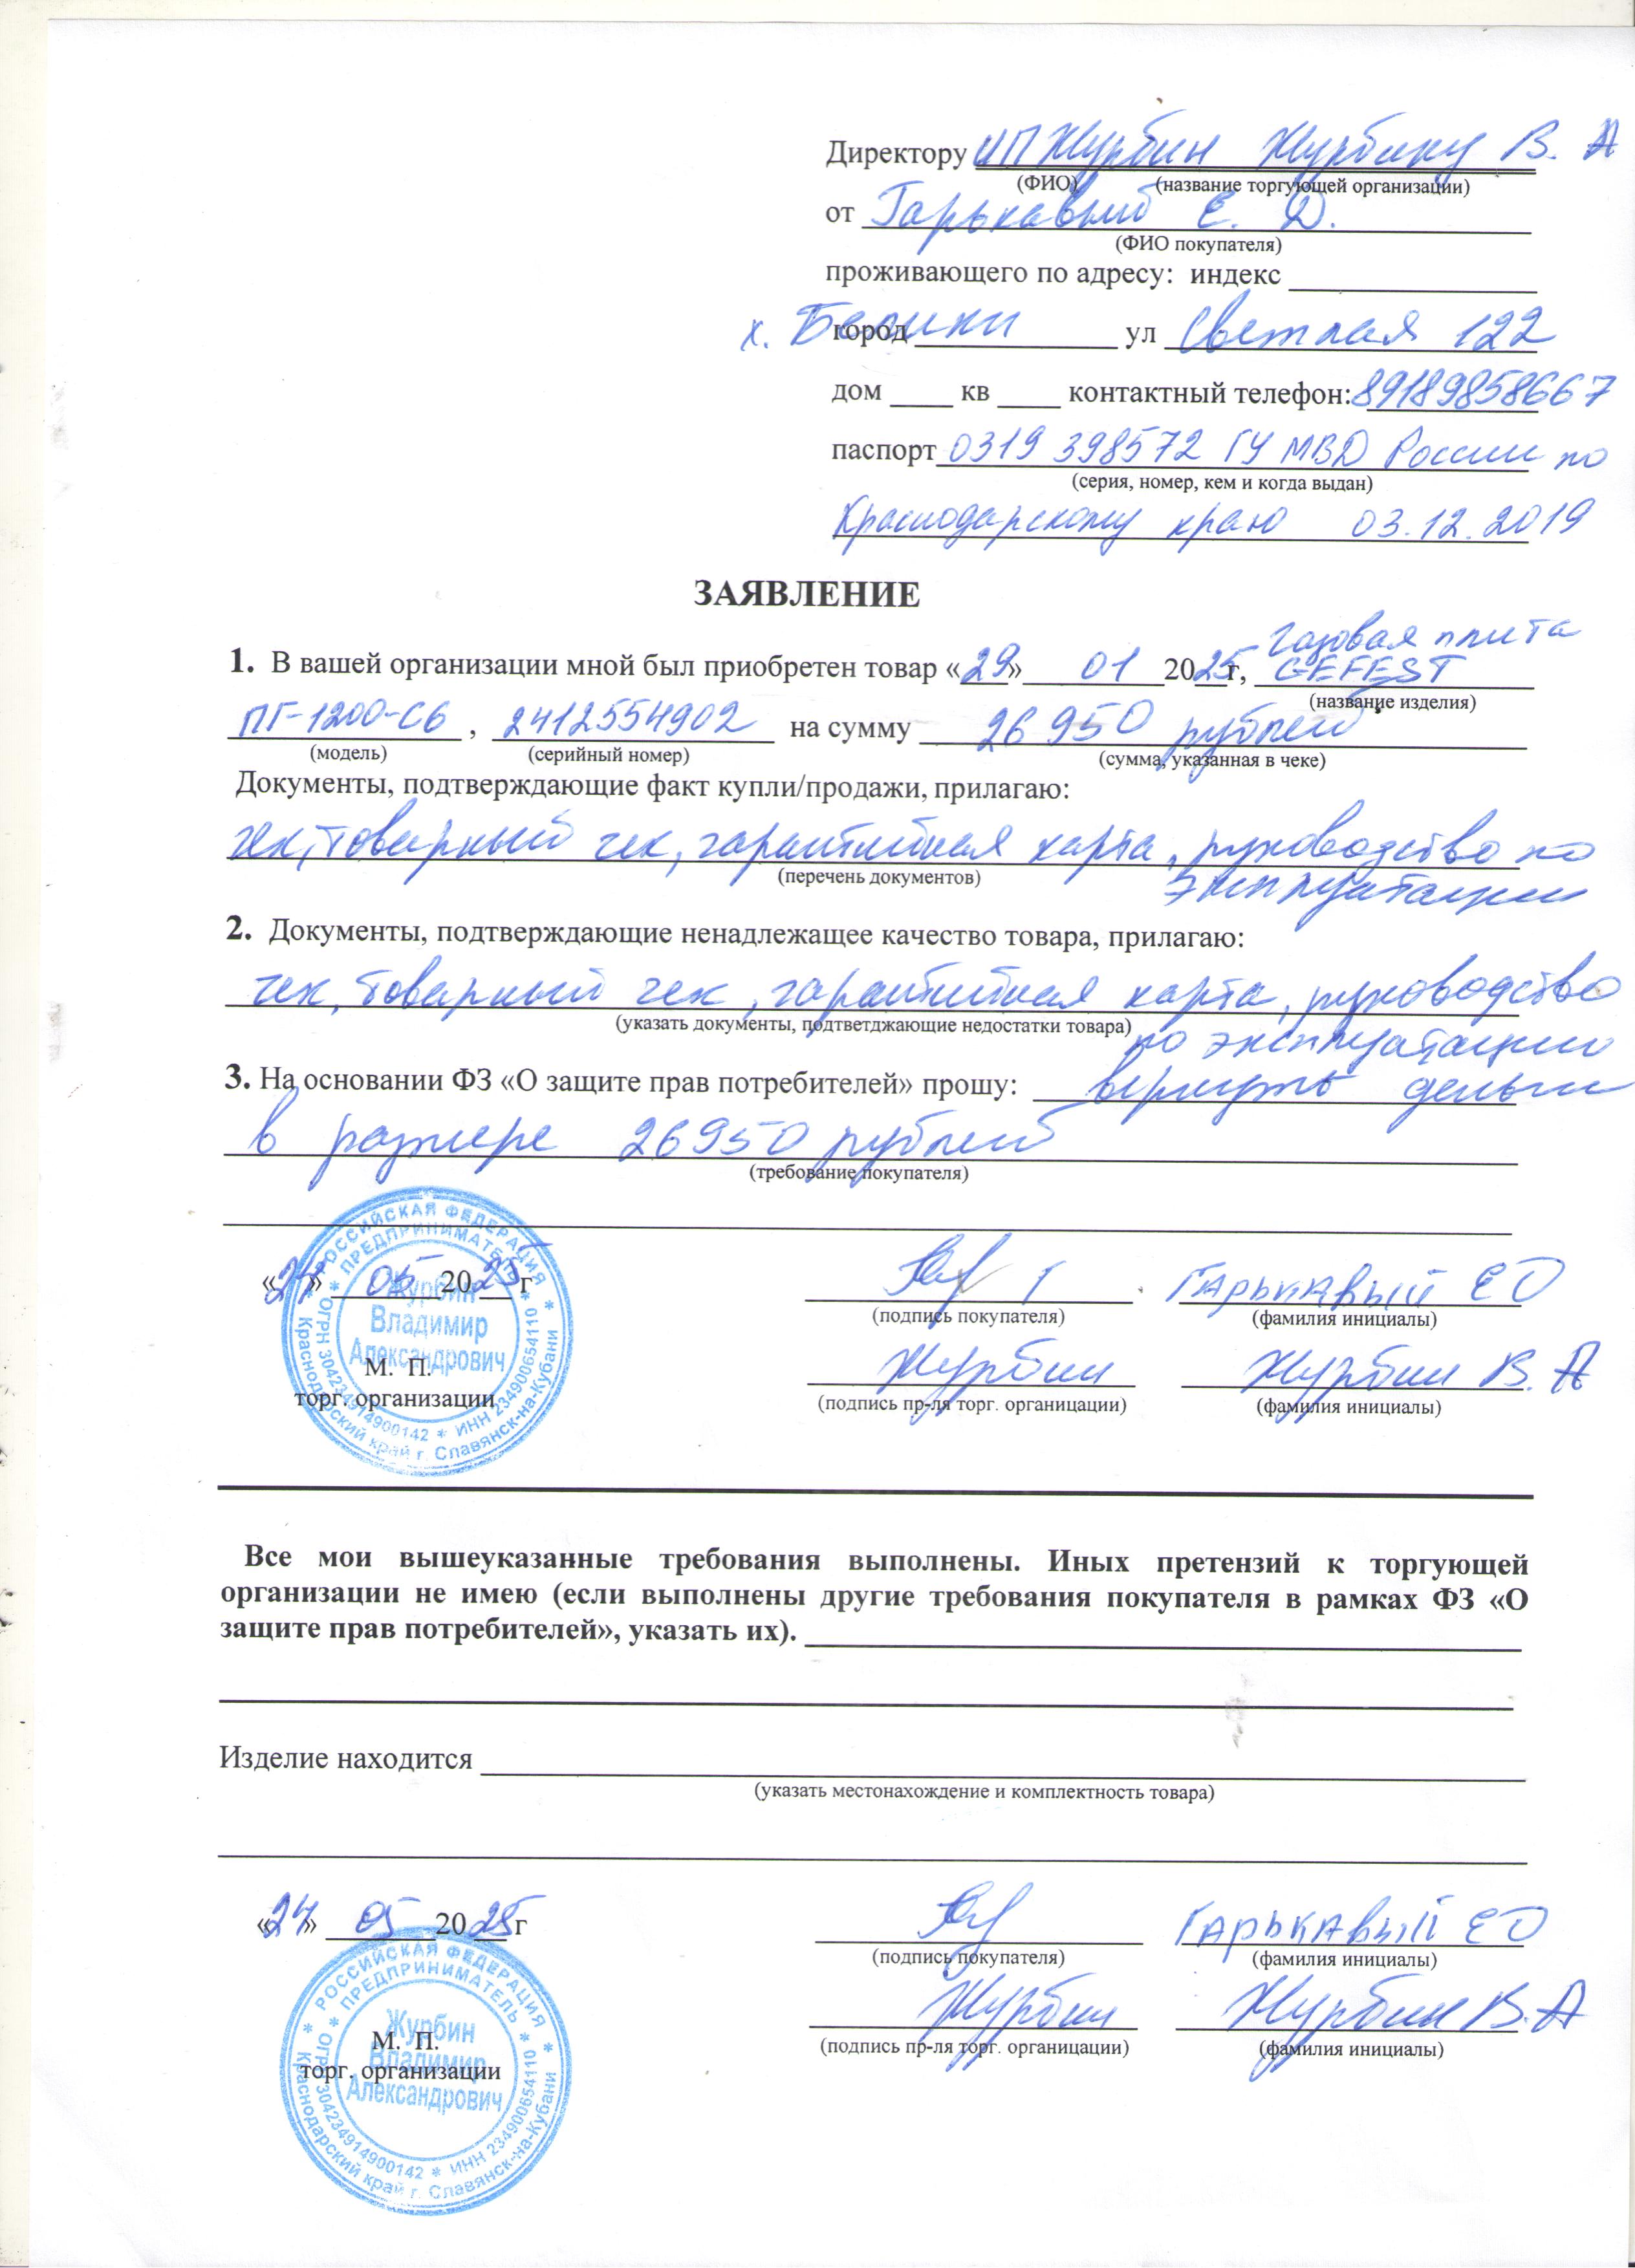 Директору ИП Журбин Журбину В. А
(ФИО) (название торгующей организации)
от Гарькавый Е. Д.
(ФИО покупателя)
проживающего по адресу: индекс
х. Белики город ул Светлая 122
дом кв контактный телефон: 89189858667
паспорт 0319 398572 ГУ МВД России по
(серия, номер, кем и когда выдан)
Краснодарскому краю 03.12.2019
ЗАЯВЛЕНИЕ
Газовая плита
1. В вашей организации мной был приобретен товар «29» 01 2025г, GEFEST
(название изделия)
ПГ-1200-С6, 2412554902 на сумму 26 950 рублей
(модель) (серийный номер) (сумма, указанная в чеке)
Документы, подтверждающие факт купли/продажи, прилагаю:
чек, товарный чек, гарантийная карта, руководство по
(перечень документов) эксплуатации
2. Документы, подтверждающие ненадлежащее качество товара, прилагаю:
чек, товарный чек, гарантийная карта, руководство
(указать документы, подтветджающие недостатки товара) по эксплуатации
3. На основании ФЗ «О защите прав потребителей» прошу: вернуть деньги
в размере 26950 рублей
(требование покупателя)
«24» 05 2025 г Гарькавый ЕД
(подпись покупателя) (фамилия инициалы)
Журбин Журбин В. А
М. П.
торг. организации (подпись пр-ля торг. органицации) (фамилия инициалы)
РОССИЙСКАЯ ФЕДЕРАЦИЯ * Краснодарский край г. Славянск-на-Кубани *
ПРЕДПРИНИМАТЕЛЬ * ОГРН 304234914900142 * ИНН 234900654110 *
Журбин
Владимир
Александрович
Все мои вышеуказанные требования выполнены. Иных претензий к торгующей
организации не имею (если выполнены другие требования покупателя в рамках ФЗ «О
защите прав потребителей», указать их).
Изделие находится
(указать местонахождение и комплектность товара)
«24» 05 2025 г Гарькавый ЕД
(подпись покупателя) (фамилия инициалы)
Журбин Журбин В. А
М. П.
торг. организации (подпись пр-ля торг. органицации) (фамилия инициалы)
РОССИЙСКАЯ ФЕДЕРАЦИЯ * Краснодарский край г. Славянск-на-Кубани *
ПРЕДПРИНИМАТЕЛЬ * ОГРН 304234914900142 * ИНН 234900654110 *
Журбин
Владимир
Александрович